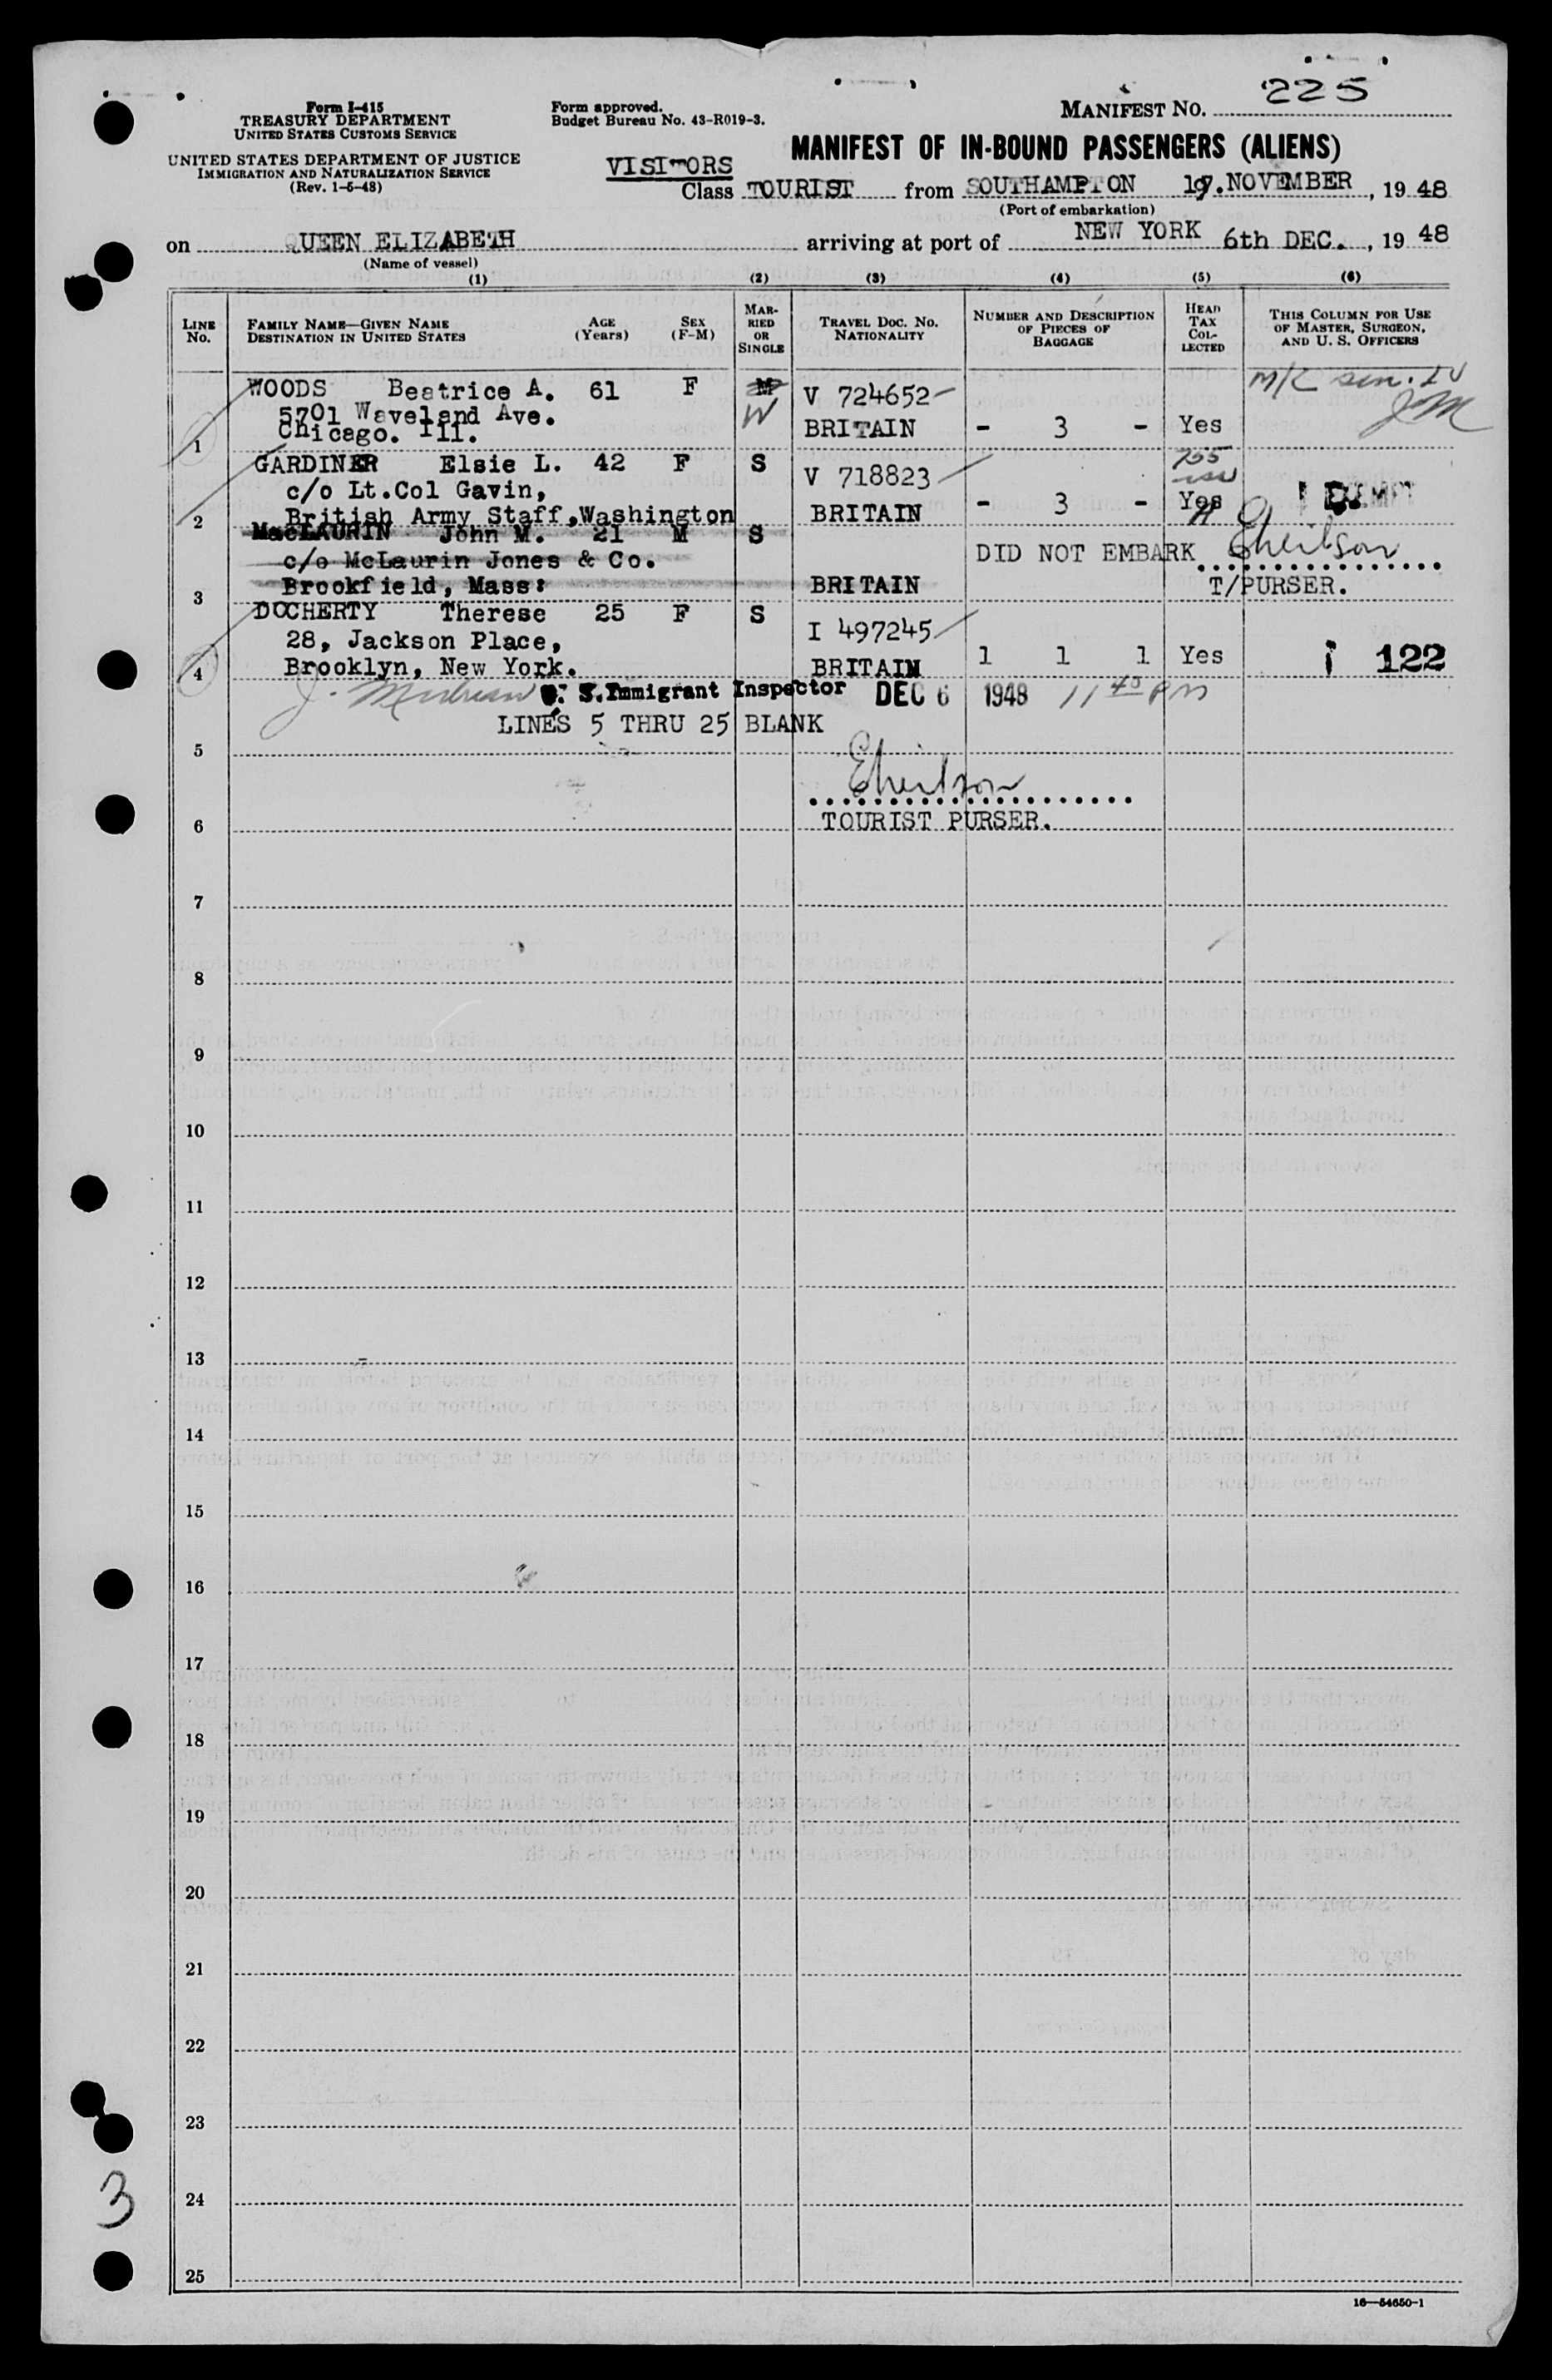 225
Form I-415
TREASURY DEPARTMENT
UNITED STATES CUSTOMS SERVICE
Form approved.
Budget Bureau No. 43-R019-3.
MANIFEST NO.
UNITED STATES DEPARTMENT OF JUSTICE
IMMIGRATION AND NATURALIZATION SERVICE
(Rev. 1-5-48)
MANIFEST OF IN-BOUND PASSENGERS (ALIENS)
VISITORS
Class TOURIST from SOUTHAMPTON NOVEMBER, 1948
(Port of embarkation)
on QUEEN ELIZABETH arriving at port of NEW YORK 6th DEC., 1948
(Name of vessel)
(1) (2) (3) (4) (5) (6)
LINE No.
FAMILY NAME—GIVEN NAME
DESTINATION IN UNITED STATES
AGE (Years)
SEX (F-M)
MARRIED OR SINGLE
TRAVEL DOC. NO.
NATIONALITY
NUMBER AND DESCRIPTION OF PIECES OF BAGGAGE
HEAD TAX COLLECTED
THIS COLUMN FOR USE OF MASTER, SURGEON, AND U. S. OFFICERS
WOODS Beatrice A. 61 F M V 724652
W
5701 Waveland Ave.
1 Chicago. Ill. BRITAIN - 3 - Yes
JM
GARDINER Elsie L. 42 F S V 718823
c/o Lt.Col Gavin,
2 British Army Staff, Washington BRITAIN - 3 - Yes EXEMPT
MacLAURIN John M. 21 M S
DID NOT EMBARK
c/o McLaurin Jones & Co.
3 Brookfield, Mass: BRITAIN T/PURSER.
DOCHERTY Therese 25 F S I 497245
28, Jackson Place,
4 Brooklyn, New York. BRITAIN 1 1 1 Yes 122
U. S. Immigrant Inspector DEC 6 1948 11 40 PM
LINES 5 THRU 25 BLANK
5
6 TOURIST PURSER.
7
8
9
10
11
12
13
14
15
16
17
18
19
20
21
22
23
3
24
25
16—54650-1